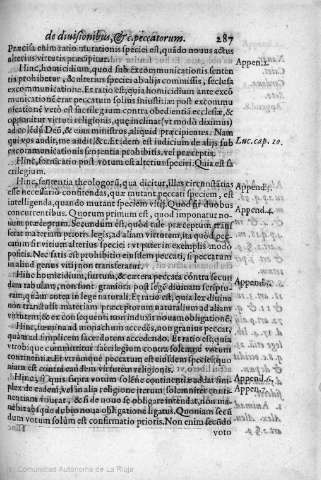 de diuisionibus, & c. peccatorum. 287
Præcisa enim ratio mutationis speciei est, quãdo nouus actus
alterius virtutis præcipitur.
Hinc, homicidium, quod sub excommunicationis senten
tia prohibetur, & alterius speciei ab alijs commissis, seclusa
excommunicatione. Et ratio est, quia homicidium ante excõ
municationem erat peccatum solius iniustitiæ: post excommu
nicationem verò est sacrilegium contra obedientiã ecclesiæ, &
opponitur virtuti religionis, quæ inclinat (vt modò diximus)
ad colẽdũ Deũ, & eius ministros, aliquid præcipientes. Nam
qui vos audit, me audit &c. Eadem est iudicium de alijs sub
excommunicationis sententia prohibitis, vel præceptis.
Hinc, fornicatio post votum est alterius speciei. Quia est sa
crilegium.
Hinc, sententia theologorũ, qua dicitur, illas circunstãtias
esse necessariò confitendas, quæ mutant peccati speciem, est
intelligenda, quando mutant speciem
concurrentibus. Quorum primum est, quod imponatur no-
uum præceptum. Secundum est, quòd tale præceptum transf
ferat materiam prioris legis, ad aliam virtutem, ita quòd pec-
catum sit vitium alterius speciei: vt patet in exemplis modò
positis. Nec satis est prohibitio eiusdem peccati, si peccatum
in aliud genus vitij non transferant.
Hinc homicidium, furtum, & cætera peccata contra secun
dam tabulam, non sunt grauiora post legẽ diuinam scriptu-
ram, quàm antea in lege naturali. Et ratio est, quia lex diuina
non transtulit materiam præceptorum naturalium ad aliam
virtutem: & ex consequenti non induxit nouam obligationẽ.
Hinc, fœmina ad monachum accedẽs, non grauius peccat,
quàm ad simplicem sacerdotem accedendo. Et ratio est, quia
vtrobique committitur sacrilegium contra solemne votum
continentiæ. Et vtrunque peccatum est eiusdem speciei: quo
niam est contra eandem virtutem religionis.
Hinc, si quis supra votum solẽne continentiæ addat sim-
plex de eadem, vel in alia religione iterum solemniter conti-
nentiam voueat, & si de nouo se obligare intendat, non ma-
nebit absque dubio noua obligatione ligatus. Quoniam secũ
dum votum solùm est confirmatio prioris. Non enim secundo
voto
Appen.2.
Luc. cap. 10.
Appen.3.
Appen.4.
Appen.5.
Appen.6.
Appen.7.
Comunidad Autónoma de La Rioja